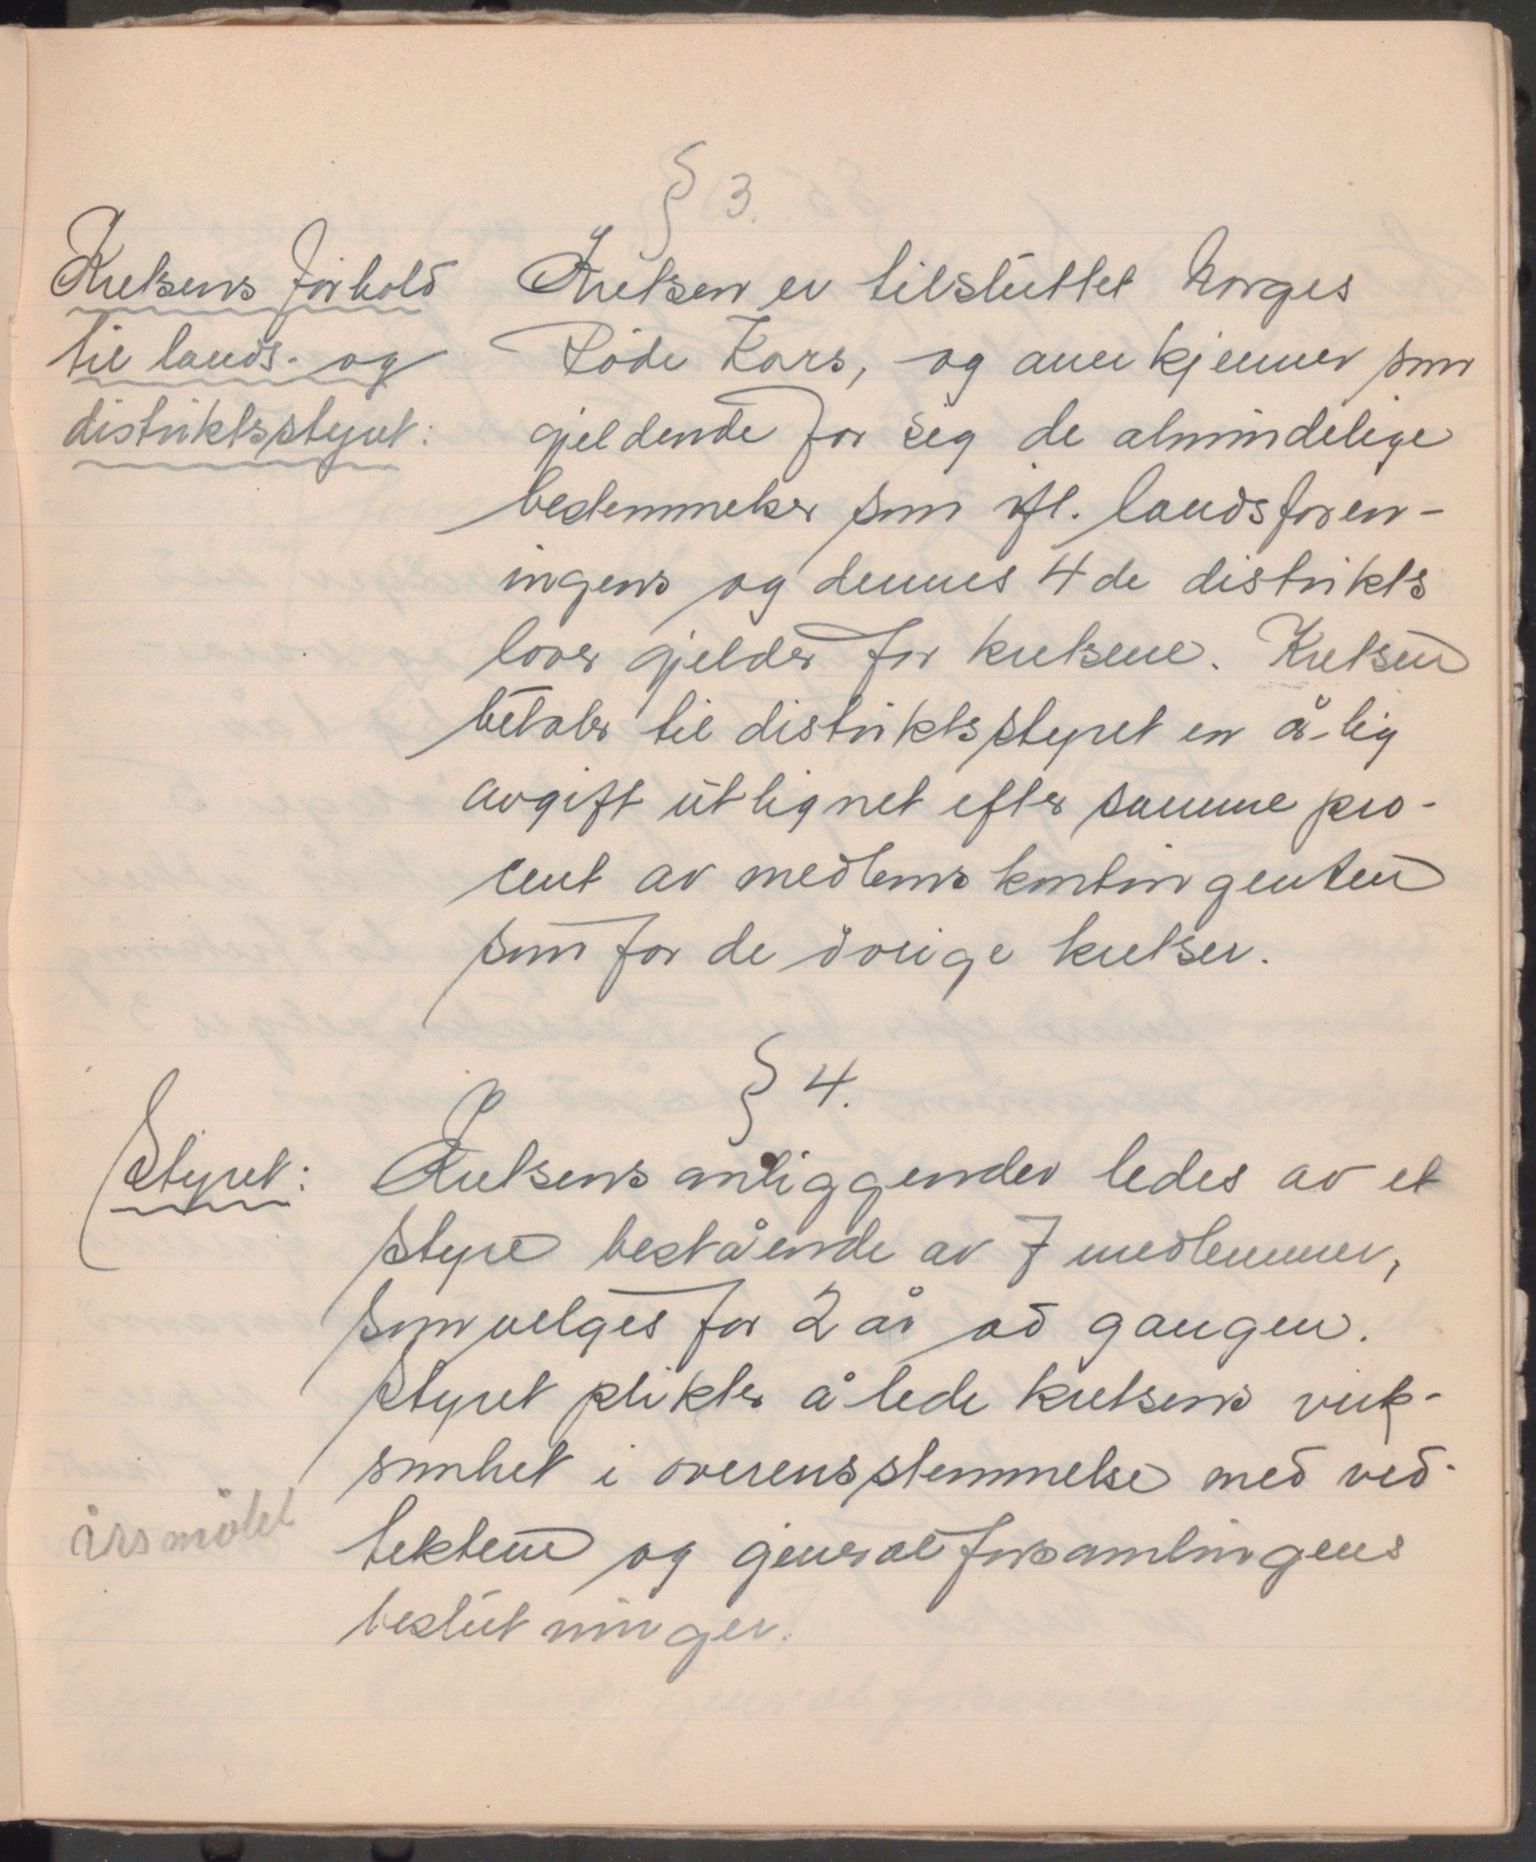 § 3.
Kretsens forhold
til lands- og
distriktsstyret:
Kretsen er tilsluttet Norges
Røde Kors, og anerkjenner som
gjeldende for seg de almindelige
bestemmelser som ifl. landsforen-
ingens og dennes 4de distrikts
lover gjelder for kretsene. Kretsen
betaler til distriktsstyret en årlig
avgift utlignet efter samme pro-
cent av medlemskontingenten
som for de övrige kretser.
§ 4.
Styret:
Kretsens anliggender ledes av et
styre bestående av 7 medlemmer,
som velges for 2 år ad gangen.
Styret plikter å lede kretsens virk-
somhet i overensstemmelse med ved-
årsmötet
tektene og generalforsamlingens
beslutninger.